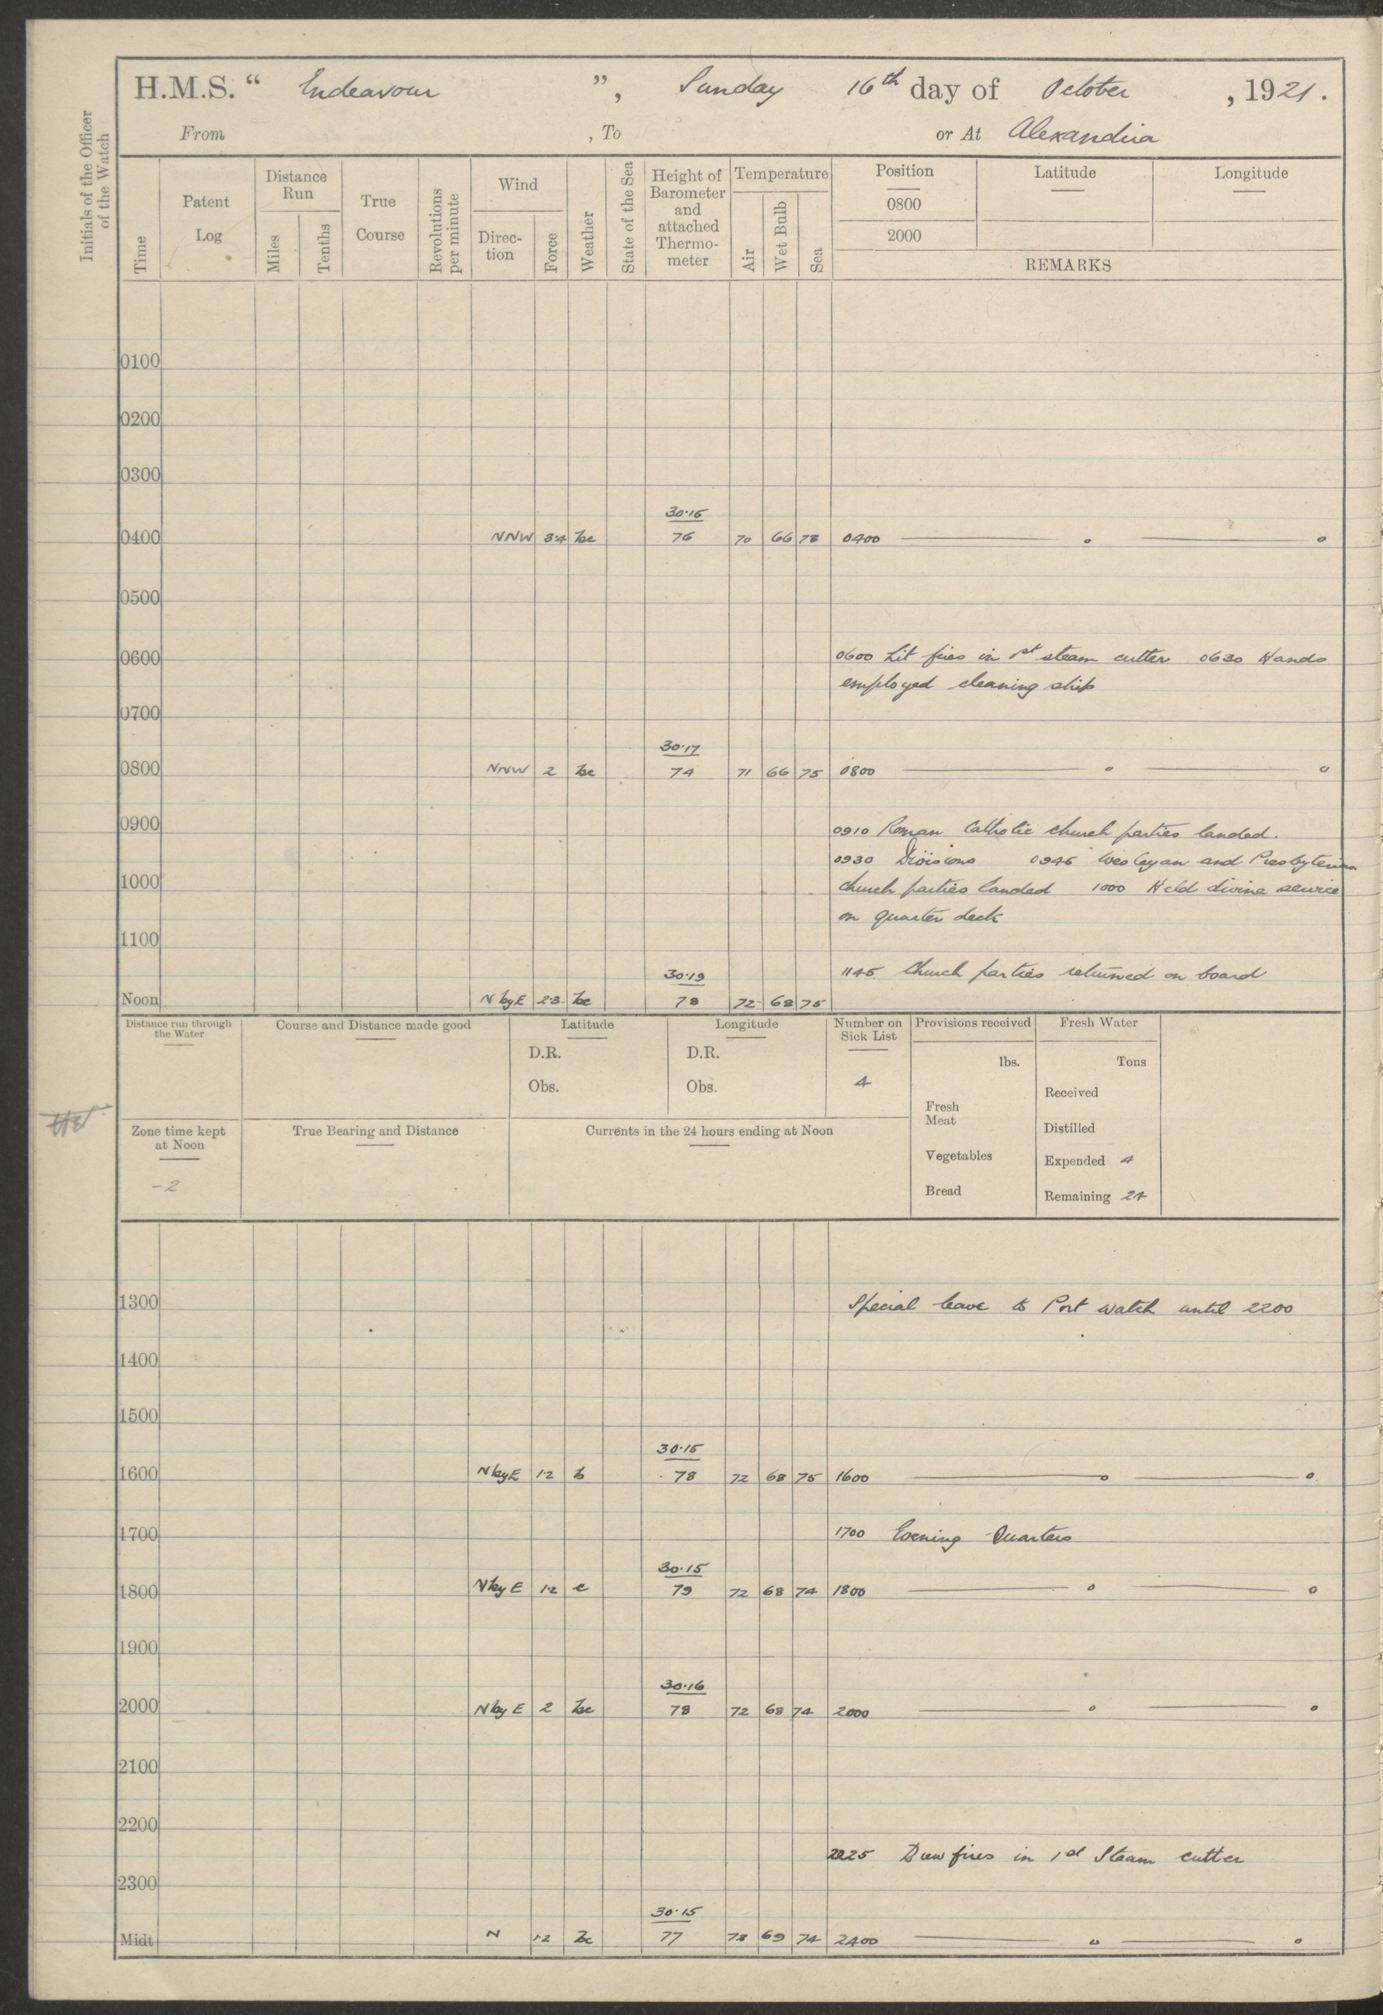 H.M.S. “ Endeavour ”, Sunday 16th day of October , 1921.
From , To or At Alexandria
Initials of the Officer of the Watch
Time
Patent Log
Distance Run
Miles
Tenths
True Course
Revolutions per minute
Wind
Direction
Force
Weather
State of the Sea
Height of Barometer and attached Thermometer
Temperature
Air
Wet Bulb
Sea
Position
0800
2000
Latitude
Longitude
REMARKS
0100
0200
0300
30·15
0400 NNW 3·4 bc 76 70 66 73 0400
0500
0600 0600 Lit fires in 1st steam cutter 0630 Hands
employed cleaning ship
0700
30·17
0800 NNW 2 bc 74 71 66 75 0800
0900 0910 Roman Catholic church parties landed.
0930 Divisions 0945 Wesleyan and Presbyterian
1000 church parties landed 1000 Held divine service
on quarter deck
1100
30·19 1145 Church parties returned on board
Noon N by E 2·3 bc 78 72 68 75
Distance run through the Water
Course and Distance made good
Latitude
D.R.
Obs.
Longitude
D.R.
Obs.
Number on Sick List
4
Provisions received
lbs.
Fresh Meat
Vegetables
Bread
Fresh Water
Tons
Received
Distilled
Expended 4
Remaining 24
Zone time kept at Noon
-2
True Bearing and Distance
Currents in the 24 hours ending at Noon
1300 Special leave to Port watch until 2200
1400
1500
30·15
1600 N by E 1·2 b 78 72 68 75 1600
1700 1700 Evening Quarters
30·15
1800 N by E 1·2 c 79 72 68 74 1800
1900
30·16
2000 N by E 2 bc 78 72 68 74 2000
2100
2200
2225 Drew fires in 1st Steam cutter
2300
30·15
Midt N 1·2 bc 77 73 69 74 2400